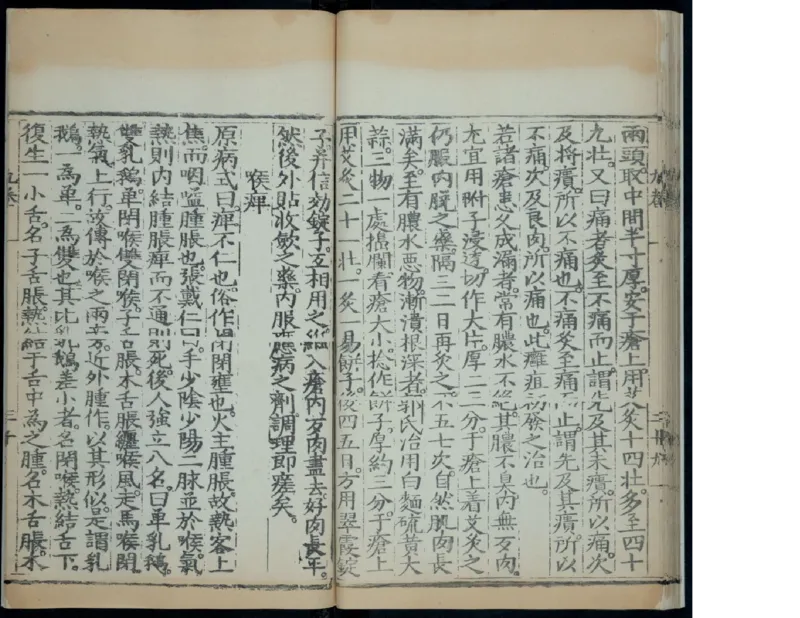 兩頭取中間半寸厚安于瘡上用艾灸十四壯多至四十
九壯又曰痛者灸至不痛而止謂先及其未㿈所以痛次
及將㿈所以不痛也不痛灸至痛而止謂先及其㿈所以
不痛次及良肉所以痛也此癰疽初發之治也
若諸瘡患久成漏者常有膿水不絕其膿不臭內無歹肉
尤宜用附子浸透切作大片厚二三分于瘡上着艾灸之
仍服內脫之藥隔三二日再灸之不五七次自然肌肉長
滿矣至有膿水惡物漸潰根深者郭氏治用白麵硫黃大
蒜三物一處擣爛看瘡大小捻作餅子厚約三分于瘡上
用艾灸二十一壯一灸一易餅子後四五日方用翠霞錠
子并信効錠子互相用之維入瘡內歹肉盡去好肉長平
然後外貼收斂之藥內服應病之劑調理即瘥矣
喉痺
原病式曰痺不仁也俗作閉閉壅也火主腫脹故熱客上
焦而咽嗌腫脹也張戴仁曰手少陰少陽二脉並於喉氣
熱則內結腫脹痺而不通則死後人強立八名曰单乳鵝
雙乳鵝单閉喉雙閉喉子舌脹木舌脹纏喉風走馬喉閉
熱氣上行故傳於喉之兩旁近外腫作以其形似是謂乳
鵝一為单二為雙也其比乳鵝差小者名閉喉熱結舌下
復生一小舌名子舌脹熱結于舌中為之腫名木舌脹木